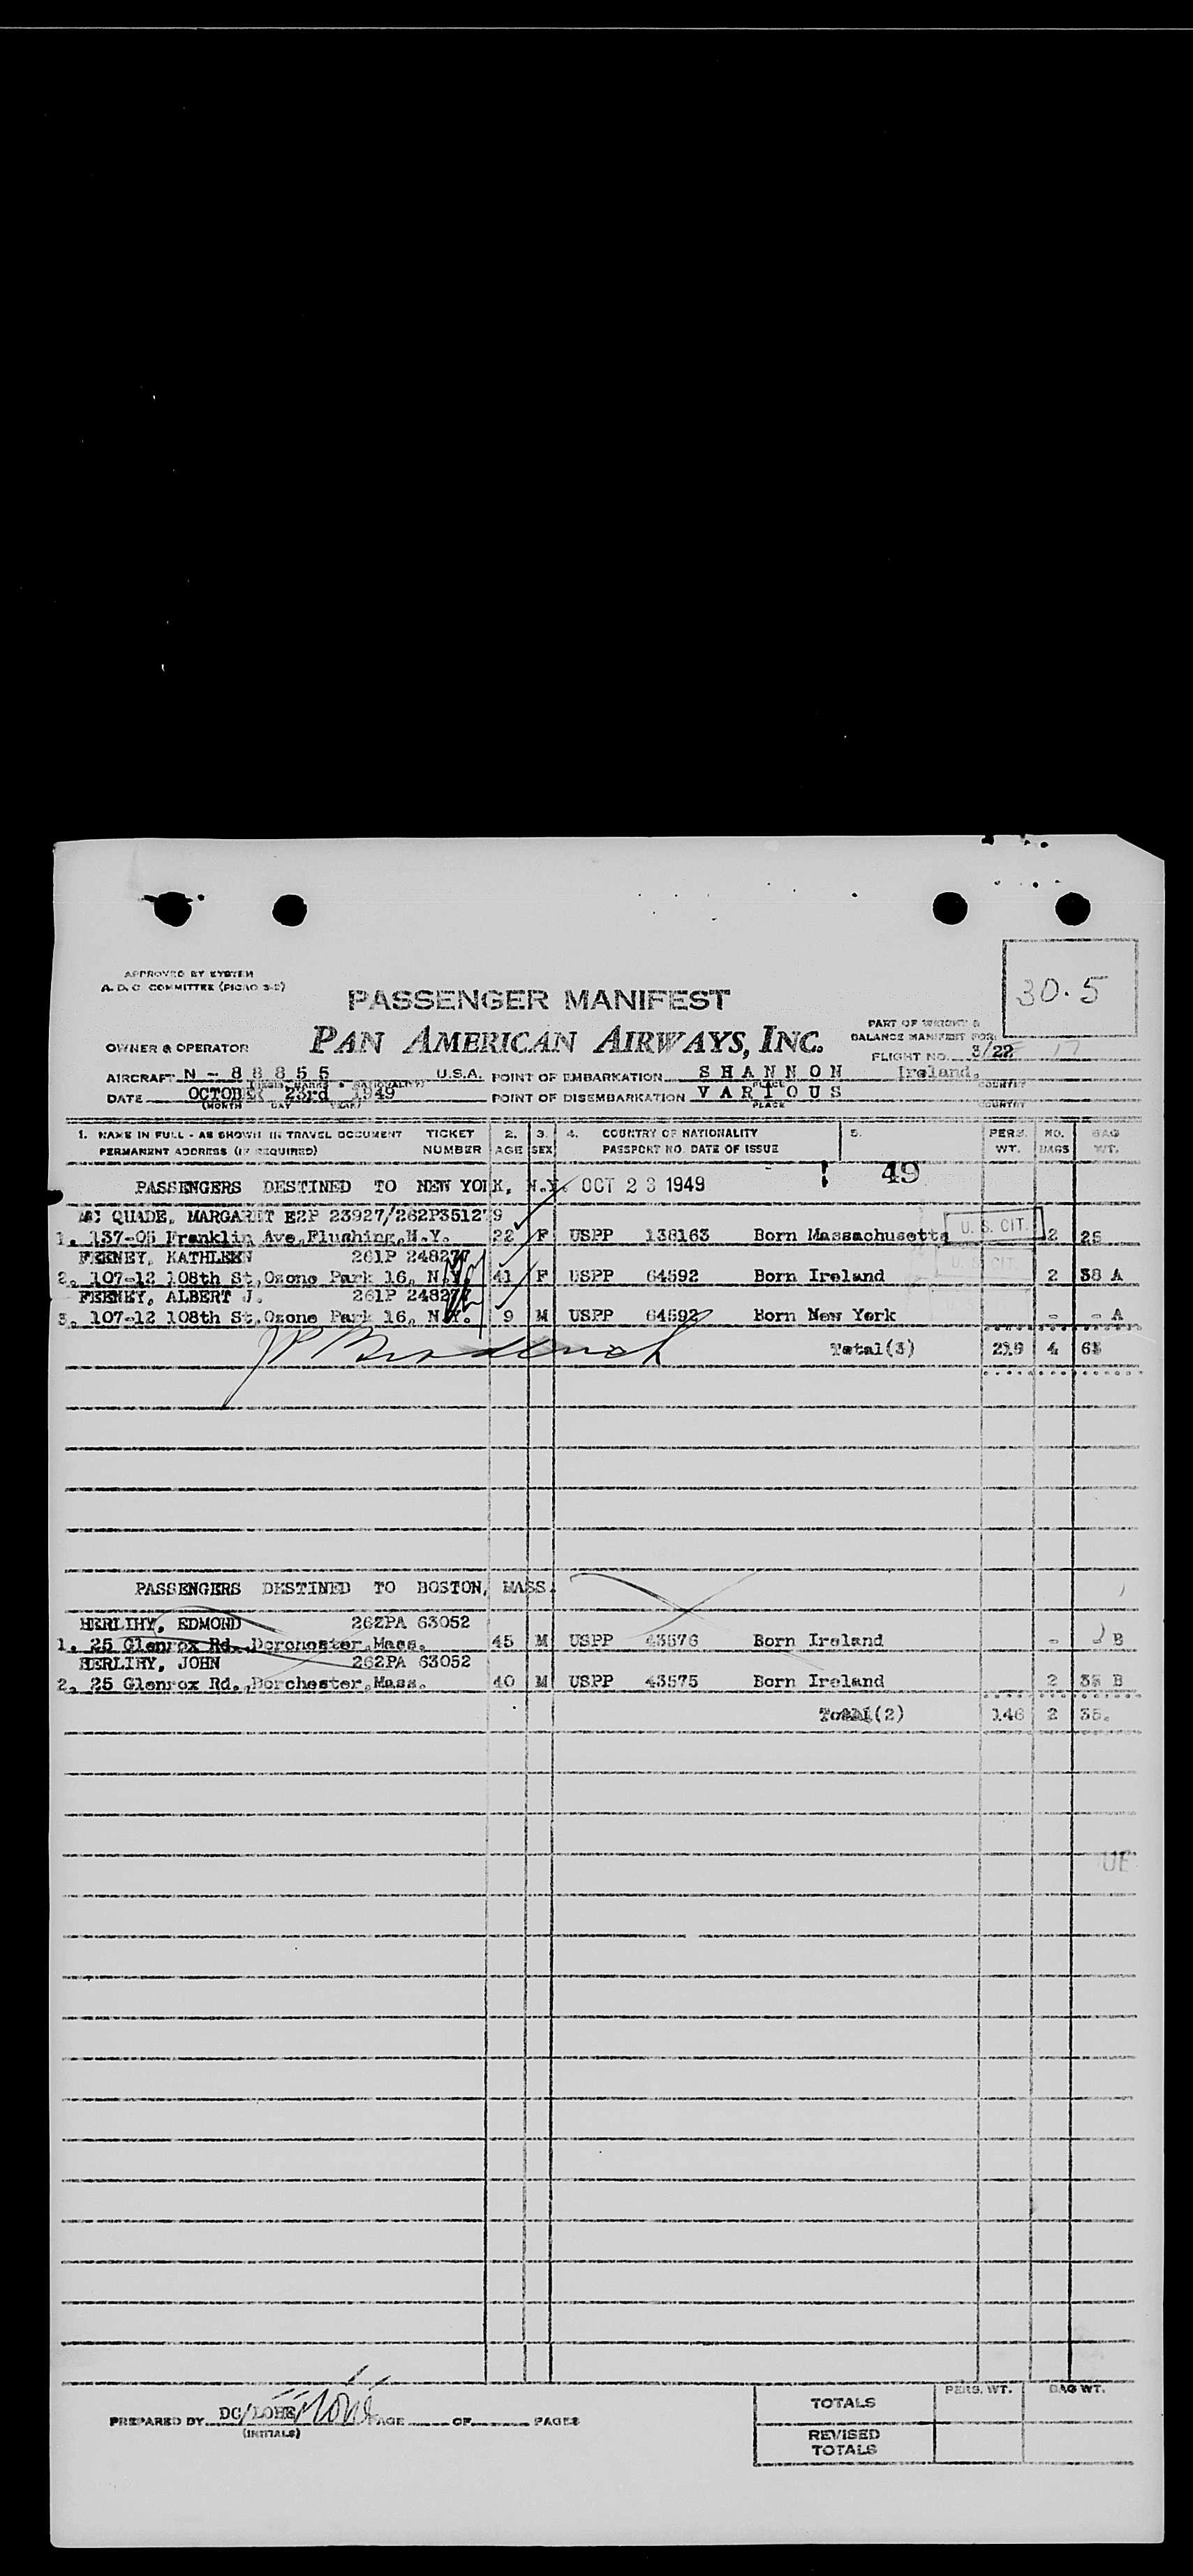 30.5
APPROVED BY SYSTEM
A. D. C. COMMITTEE (PICAO 3-2)
PASSENGER MANIFEST
OWNER & OPERATOR PAN AMERICAN AIRWAYS, INC.
PART OF WEIGHT &
BALANCE MANIFEST FOR
FLIGHT NO. 3/22 17
AIRCRAFT N - 8 8 8 5 5 U.S.A. POINT OF EMBARKATION S H A N N O N Ireland.
DATE OCTOBER 23rd 1949 POINT OF DISEMBARKATION V A R I O U S
(MONTH DAY YEAR) PLACE COUNTRY
1. NAME IN FULL - AS SHOWN IN TRAVEL DOCUMENT TICKET 2. 3. 4. COUNTRY OF NATIONALITY 5. PERS. NO. BAG
PERMANENT ADDRESS (IF REQUIRED) NUMBER AGE SEX PASSPORT NO. DATE OF ISSUE WT. BAGS WT.
49
PASSENGERS DESTINED TO NEW YORK, N.Y. OCT 23 1949
MC QUADE, MARGARET E2P 23927/262P351279
1. 137-05 Franklin Ave,Flushing,N.Y. 22 F USPP 138163 Born Massachusetts U. S. CIT. 2 25
FEENEY, KATHLEEN 261P 248277
2. 107-12 108th St,Ozone Park 16, N.Y. 41 F USPP 64592 Born Ireland U. S. CIT. 2 38 A
FEENEY, ALBERT J. 261P 24827
3. 107-12 108th St,Ozone Park 16, N.Y. 9 M USPP 64592 Born New York - - A
Total(3) 219 4 63
PASSENGERS DESTINED TO BOSTON, MASS.
HERLIHY, EDMOND 262PA 63052
1. 25 Glenrox Rd.,Dorchester,Mass. 45 M USPP 43576 Born Ireland - B
HERLIHY, JOHN 262PA 63052
2. 25 Glenrox Rd.,Dorchester,Mass. 40 M USPP 43575 Born Ireland 2 35 B
Total(2) 146 2 35.
UE
PERS. WT. BAG WT.
TOTALS
PREPARED BY DC/LOHE PAGE OF PAGES
(INITIALS)
REVISED
TOTALS